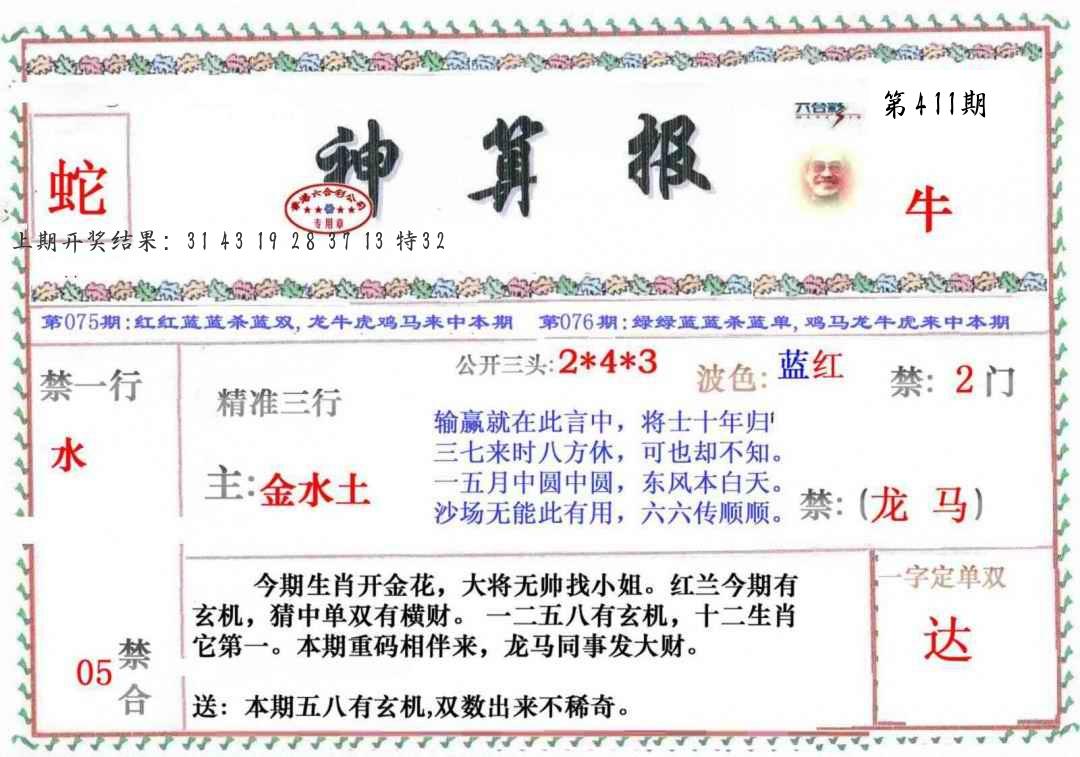 六合彩
第411期
神算报
蛇
香港六合彩公司
专用章
牛
上期开奖结果：31 43 19 28 37 13 特32
第075期:红红蓝蓝杀蓝双,龙牛虎鸡马来中本期
第076期:绿绿蓝蓝杀蓝单,鸡马龙牛虎来中本期
禁一行
水
精准三行
主:金水土
公开三头:2*4*3
波色:蓝红
禁: 2门
输赢就在此言中，将士十年归
三七来时八方休，可也却不知。
一五月中圆中圆，东风本白天。
沙场无能此有用，六六传顺顺。
禁:(龙 马)
05
禁合
今期生肖开金花，大将无帅找小姐。红兰今期有
玄机，猜中单双有横财。 一二五八有玄机，十二生肖
它第一。本期重码相伴来，龙马同事发大财。
送：本期五八有玄机,双数出来不稀奇。
一字定单双
达